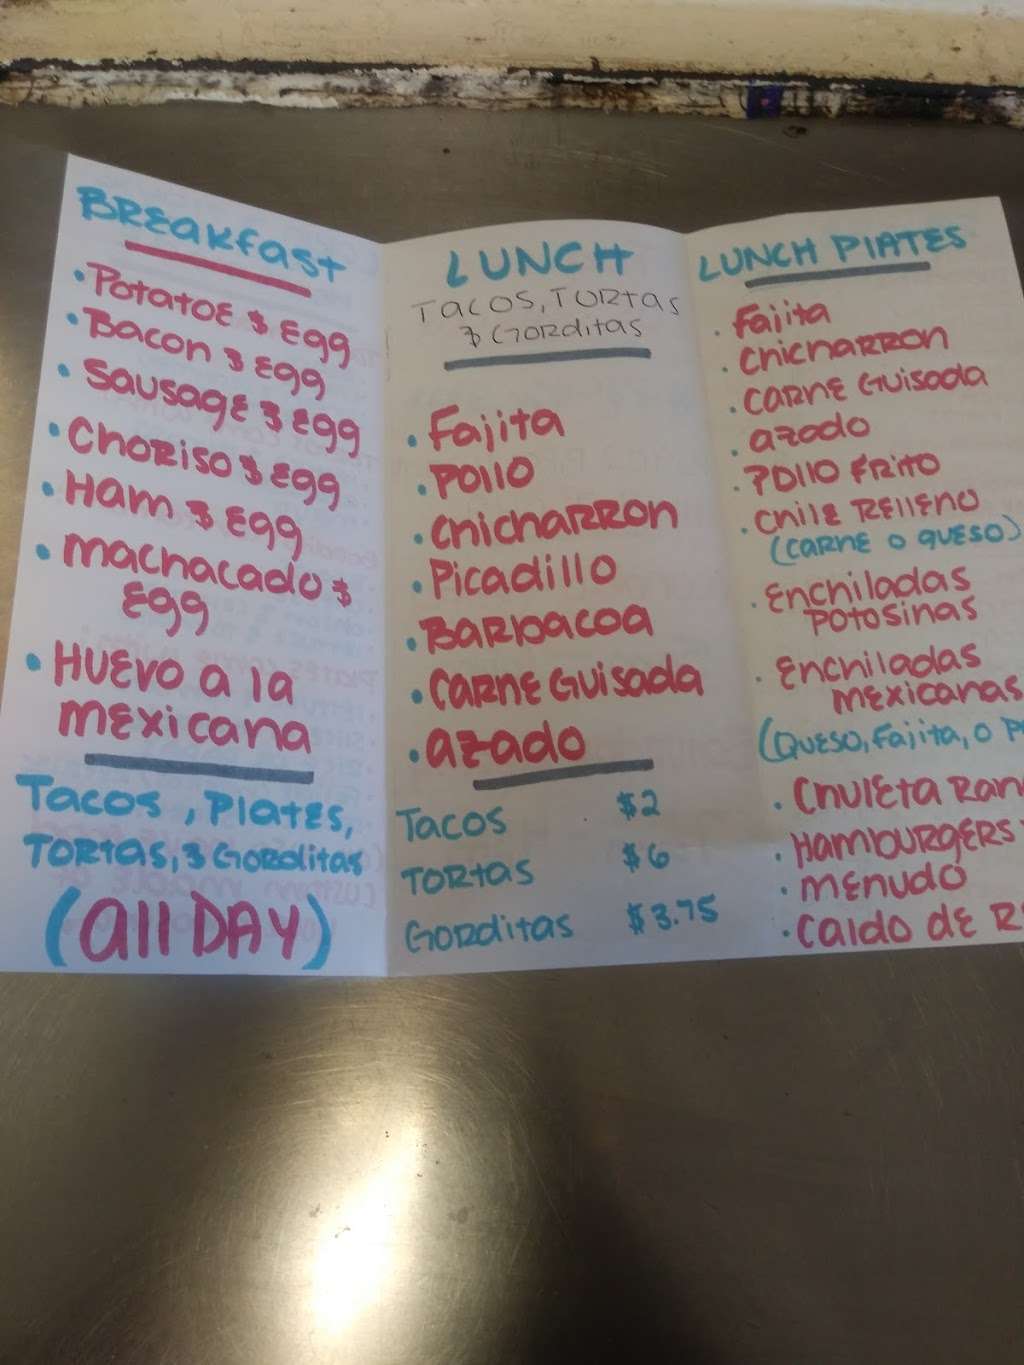 BREAKfast
• POtatOE & Egg
• Bacon & Egg
• Sausage & Egg
• Choriso & Egg
• Ham & Egg
• machacado &
Egg
• HUEVO a la
mexicana
Tacos, Plates,
TORTAS, & Gorditas
(all DAY)
LUNCH
TACOS, TORTAS
& Gorditas
• Fajita
• POllO
• Chicharron
• Picadillo
• Barbacoa
• Carne Guisada
• azado
TACOS $2
TORTAS $6
Gorditas $3.75
LUNCH PlATES
• Fajita
• Chicharron
• CARNE Guisada
• azado
• POllO FRITO
• Chile RELLENO
(CARNE O QUESO)
• Enchiladas
POTOSINAS
• Enchiladas
mexicanas
(QUESO, Fajita, O
• Chuleta
• HAMBURGERS
• MENUDO
• Caldo de